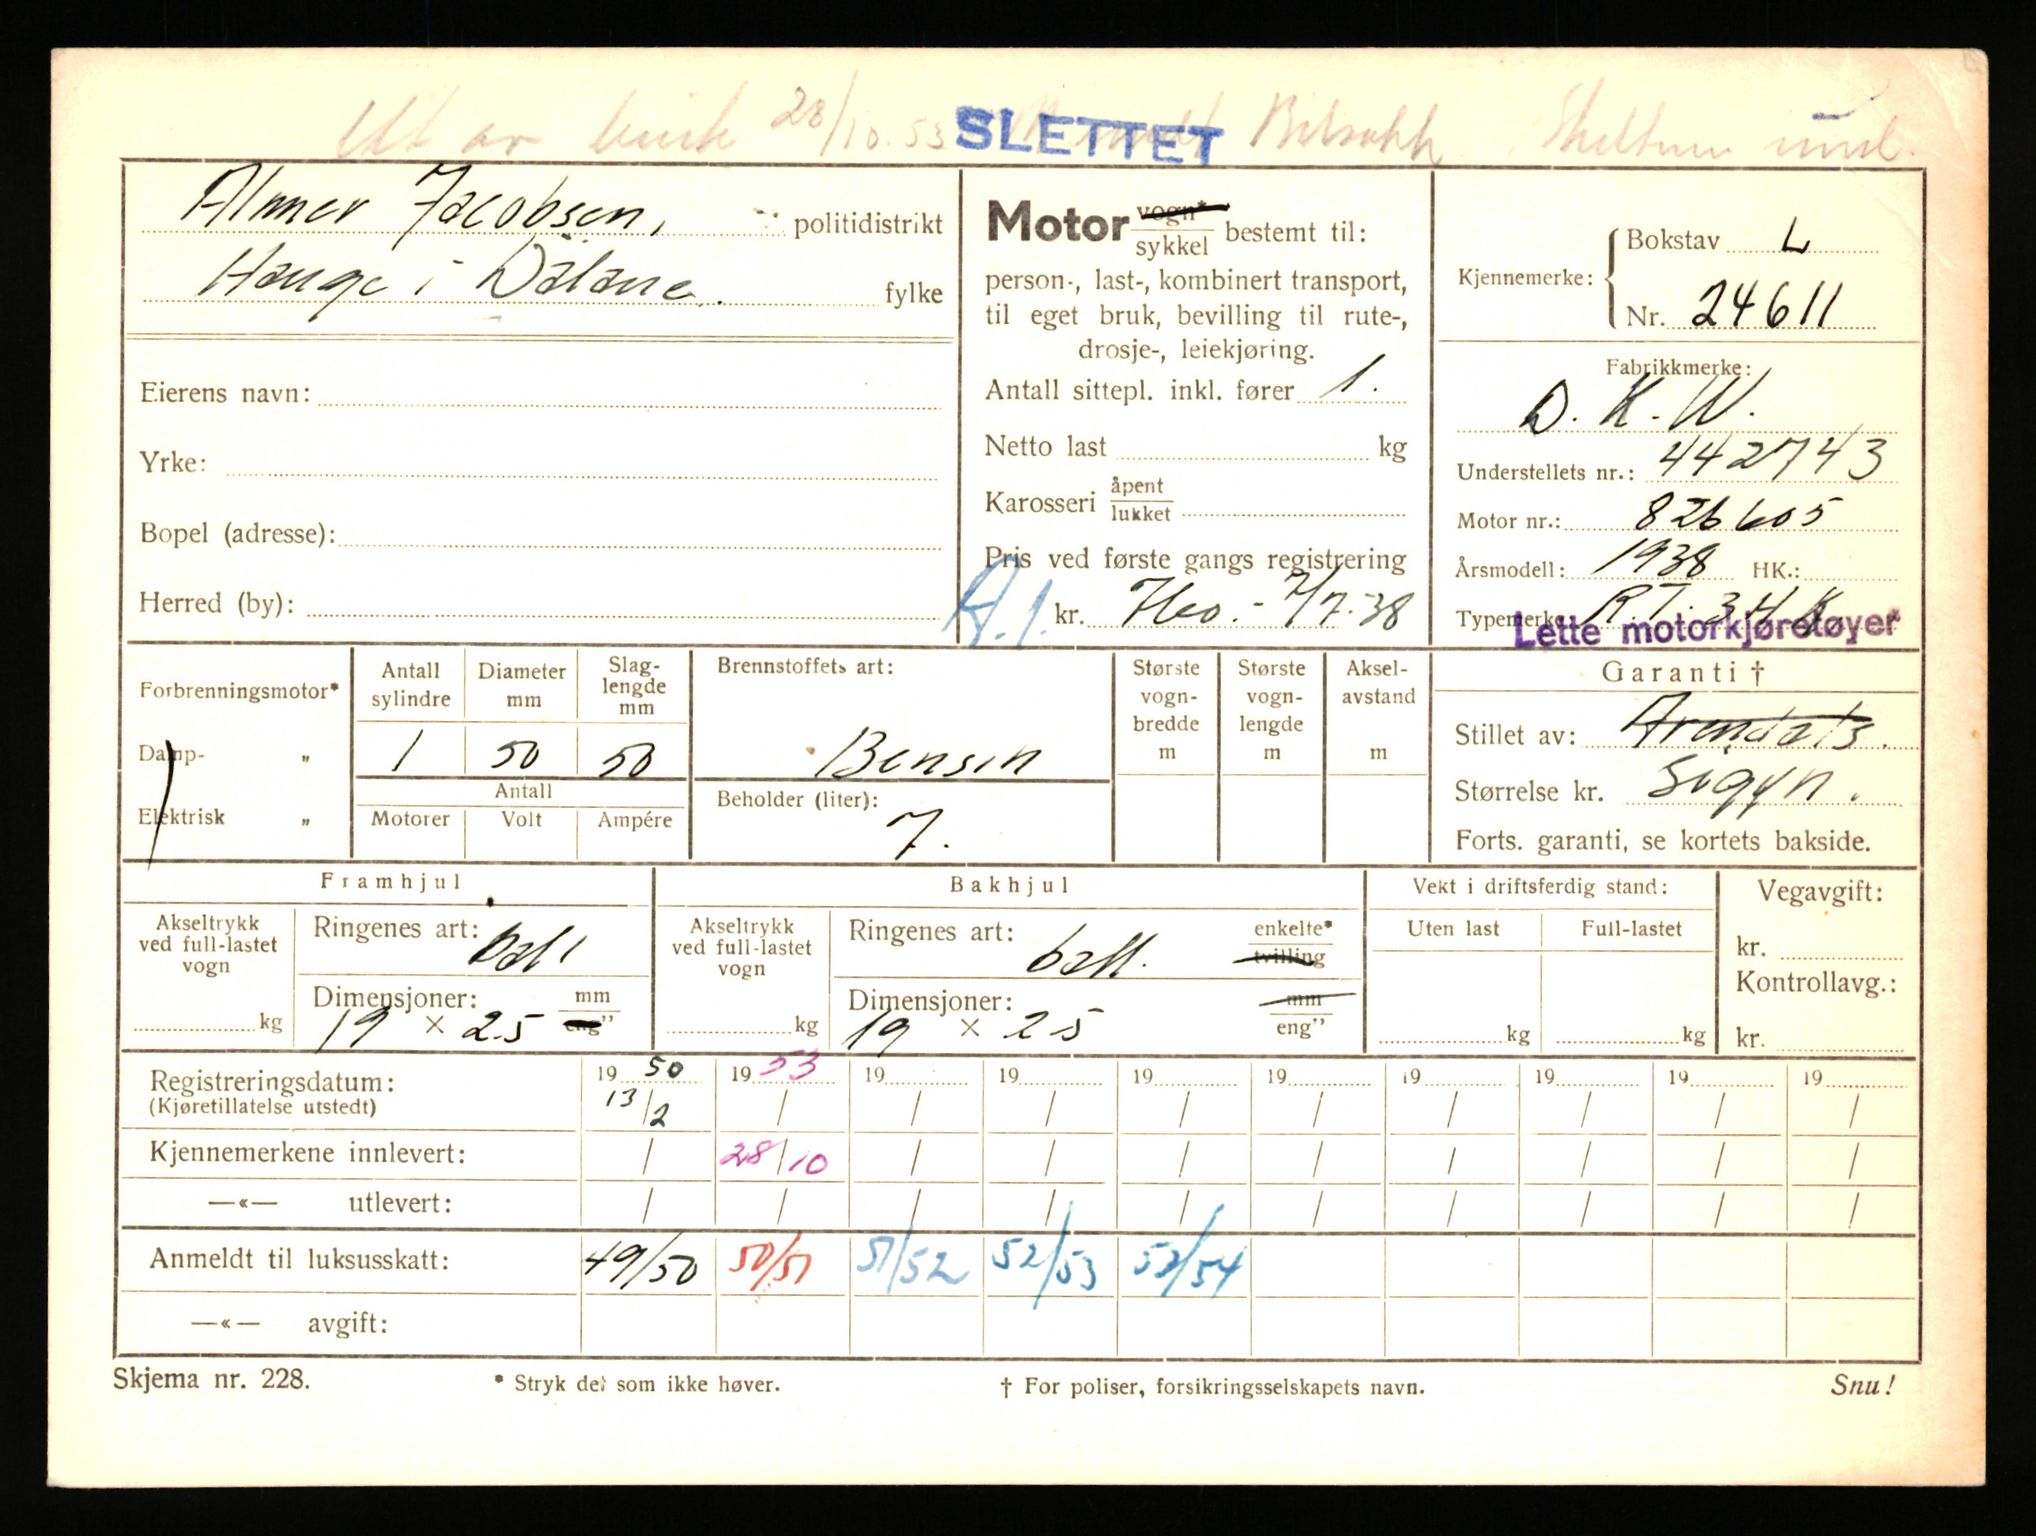 Ut av bruk 28/10.53 SLETTET Bilsakk. Skiltene innl.
Almer Jacobsen, politidistrikt
Hauge i Dalane. fylke
Eierens navn:
Yrke:
Bopel (adresse):
Herred (by):
Motor vogn* sykkel bestemt til:
person-, last-, kombinert transport,
til eget bruk, bevilling til rute-,
drosje-, leiekjøring.
Antall sittepl. inkl. fører 1.
Netto last kg
Karosseri åpent lukket
Pris ved første gangs registrering
A.1. kr. 760.- 7/7-38
Kjennemerke: { Bokstav L
Nr. 24611
Fabrikkmerke:
D. K. W.
Understellets nr.: 442743
Motor nr.: 826605
Årsmodell: 1938 HK.:
Typemerke R.T. 3 H K
Lette motorkjøretøyer
Forbrenningsmotor*
Damp- „
Elektrisk „
Antall sylindre 1
Diameter mm 50
Slag-lengde mm 50
Antall
Motorer Volt Ampére
Brennstoffets art:
Bensin
Beholder (liter):
7.
Største vogn-bredde m
Største vogn-lengde m
Aksel-avstand m
Garanti †
Stillet av: Arendals
Størrelse kr. Sigyn.
Forts. garanti, se kortets bakside.
Framhjul
Akseltrykk ved full-lastet vogn kg
Ringenes art: ball
Dimensjoner: mm eng”
19 × 2.5
Bakhjul
Akseltrykk ved full-lastet vogn kg
Ringenes art: ball. enkelte* tvilling
Dimensjoner: mm eng”
19 × 2.5
Vekt i driftsferdig stand:
Uten last Full-lastet
kg kg
Vegavgift:
kr.
Kontrollavg.:
kr.
Registreringsdatum: 19 50 19 53 19 19 19 19 19 19 19 19
(Kjøretillatelse utstedt) 13/2 / / / / / / / / /
Kjennemerkene innlevert: / 28/10 / / / / / / / /
—«— utlevert: / / / / / / / / / /
Anmeldt til luksusskatt: 49/50 50/51 51/52 52/53 53/54
—«— avgift:
Skjema nr. 228. * Stryk det som ikke høver. † For poliser, forsikringsselskapets navn. Snu!